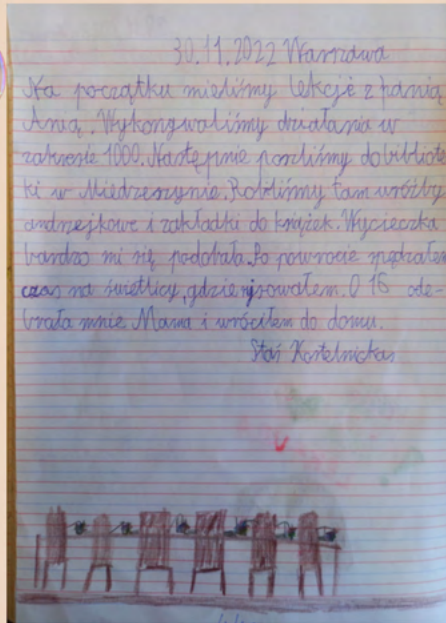 30.11.2022 Warszawa
Na początku mieliśmy lekcje z panią
Anią. Wykonywaliśmy działania w
zakresie 1000. Następnie poszliśmy do bibliote
ki w Miedzeszynie. Robiliśmy tam wróżby
andrzejkowe i zakładki do książek. Wycieczka
bardzo mi się podobała. Po powrocie spędzałem
czas na świetlicy, gdzie rysowałem. O 16 ode-
brała mnie Mama i wróciłem do domu.
Staś